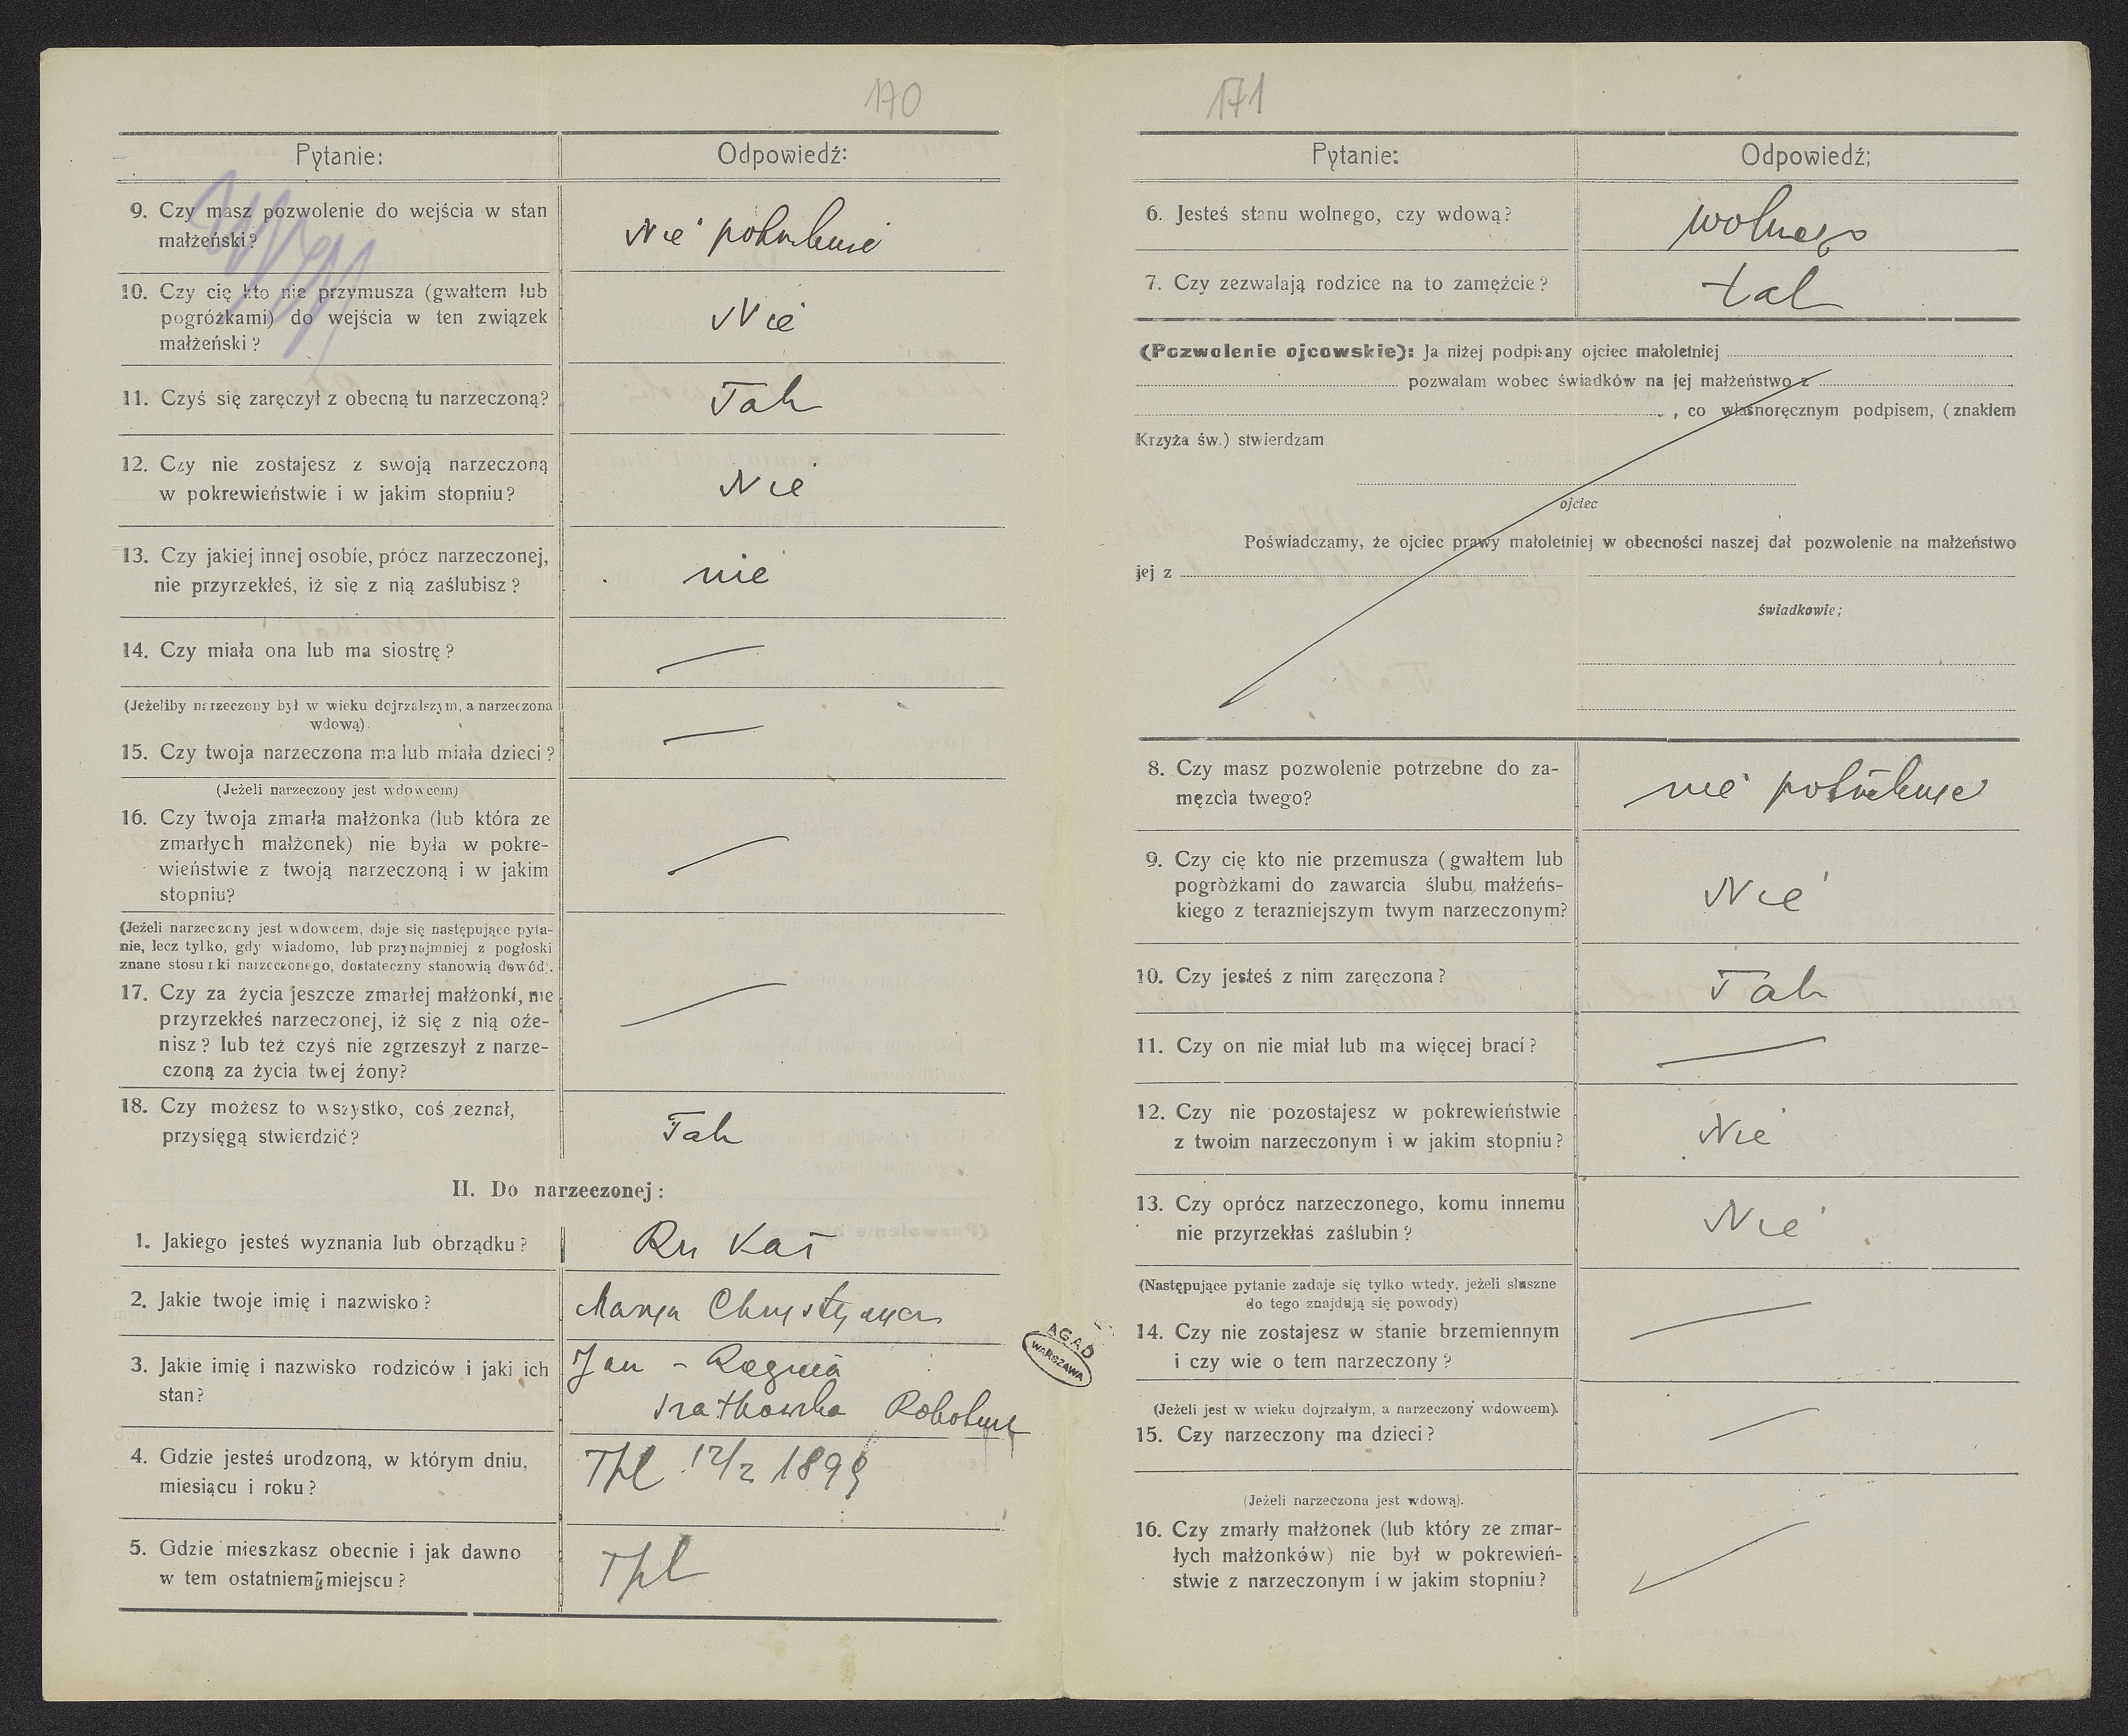 170
Pytanie:
Odpowiedź:
9. Czy masz pozwolenie do wejścia w stan
małżeński?
Nie potrzebuje
10. Czy cię kto nie przymusza (gwałtem lub
pogróżkami) do wejścia w ten związek
małżeński?
Nie
11. Czyś się zaręczył z obecną tu narzeczoną?
Tak
12. Czy nie zostajesz z swoją narzeczoną
w pokrewieństwie i w jakim stopniu?
Nie
13. Czy jakiej innej osobie, prócz narzeczonej,
nie przyrzekłeś, iż się z nią zaślubisz?
nie
14. Czy miała ona lub ma siostrę?
(Jeżeliby narzeczony był w wieku dojrzalszym, a narzeczona
wdową).
15. Czy twoja narzeczona ma lub miała dzieci?
(Jeżeli narzeczony jest wdowcem)
16. Czy twoja zmarła małżonka (lub która ze
zmarłych małżonek) nie była w pokre-
wieństwie z twoją narzeczoną i w jakim
stopniu?
(Jeżeli narzeczony jest wdowcem, daje się następujące pyta-
nie, lecz tylko, gdy wiadomo, lub przynajmniej z pogłoski
znane stosunki narzeczonego, dostateczny stanowią dowód).
17. Czy za życia jeszcze zmarłej małżonki, nie
przyrzekłeś narzeczonej, iż się z nią oże-
nisz? lub też czyś nie zgrzeszył z narze-
czoną za życia twej żony?
18. Czy możesz to wszystko, coś zeznał,
przysięgą stwierdzić?
Tak
II. Do narzeczonej:
1. Jakiego jesteś wyznania lub obrządku?
Rz Kat
2. Jakie twoje imię i nazwisko?
Marya
3. Jakie imię i nazwisko rodziców i jaki ich
stan?
Jan -
4. Gdzie jesteś urodzoną, w którym dniu,
miesiącu i roku?
Tpl 12/2 1899
5. Gdzie mieszkasz obecnie i jak dawno
w tem ostatniem miejscu?
Tpl
AGAD
WARSZAWA
171
Pytanie:
Odpowiedź;
6. Jesteś stanu wolnego, czy wdową?
wolnego
7. Czy zezwalają rodzice na to zamężcie?
tak
(Pozwolenie ojcowskie): Ja niżej podpisany ojciec małoletniej
pozwalam wobec świadków na jej małżeństwo z
, co własnoręcznym podpisem, (znakiem
Krzyża św.) stwierdzam
ojciec
Poświadczamy, że ojciec prawy małoletniej w obecności naszej dał pozwolenie na małżeństwo
jej z
świadkowie;
8. Czy masz pozwolenie potrzebne do za-
męzcia twego?
nie potrzebuje
9. Czy cię kto nie przemusza (gwałtem lub
pogròżkami do zawarcia ślubu małżeńs-
kiego z terazniejszym twym narzeczonym?
Nie
10. Czy jesteś z nim zaręczona?
Tak
11. Czy on nie miał lub ma więcej braci?
12. Czy nie pozostajesz w pokrewieństwie
z twoim narzeczonym i w jakim stopniu?
Nie
13. Czy oprócz narzeczonego, komu innemu
nie przyrzekłaś zaślubin?
Nie
(Następujące pytanie zadaje się tylko wtedy, jeżeli słuszne
do tego znajdują się powody)
14. Czy nie zostajesz w stanie brzemiennym
i czy wie o tem narzeczony?
(Jeżeli jest w wieku dojrzałym, a narzeczony wdowcem).
15. Czy narzeczony ma dzieci?
(Jeżeli narzeczona jest wdową).
16. Czy zmarły małżonek (lub który ze zmar-
łych małżonków) nie był w pokrewień-
stwie z narzeczonym i w jakim stopniu?